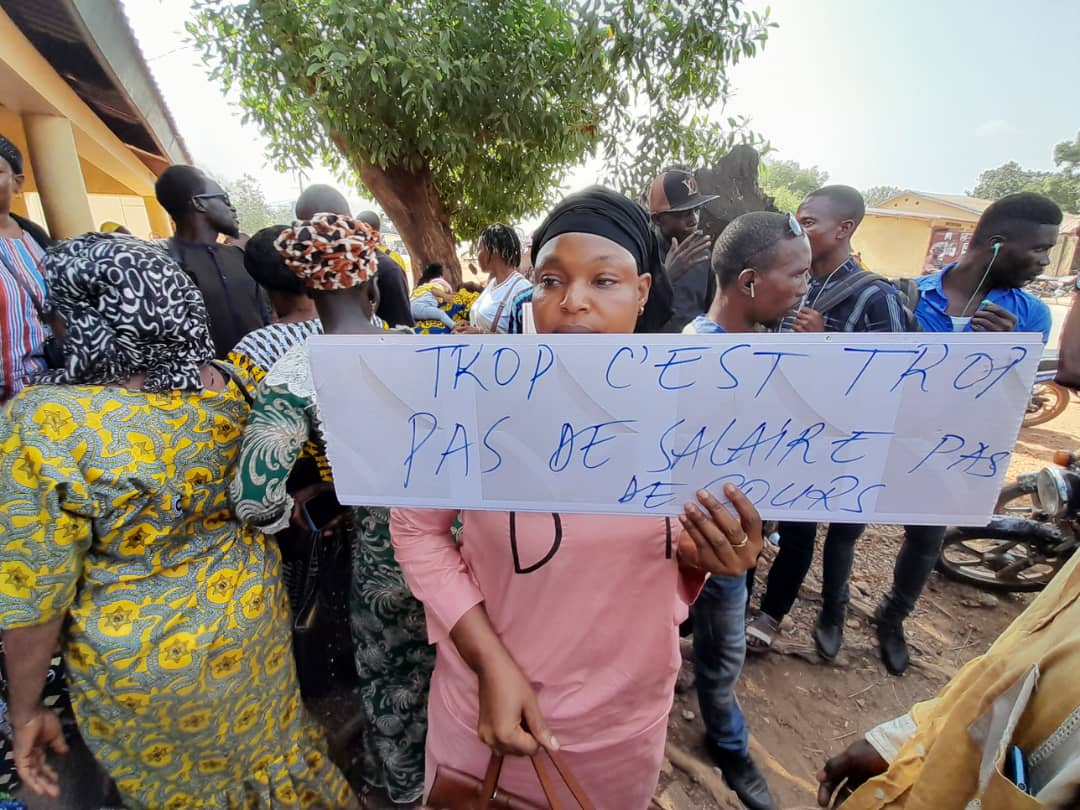 TROP C'EST TROP
PAS DE SALAIRE PAS
DE COURS